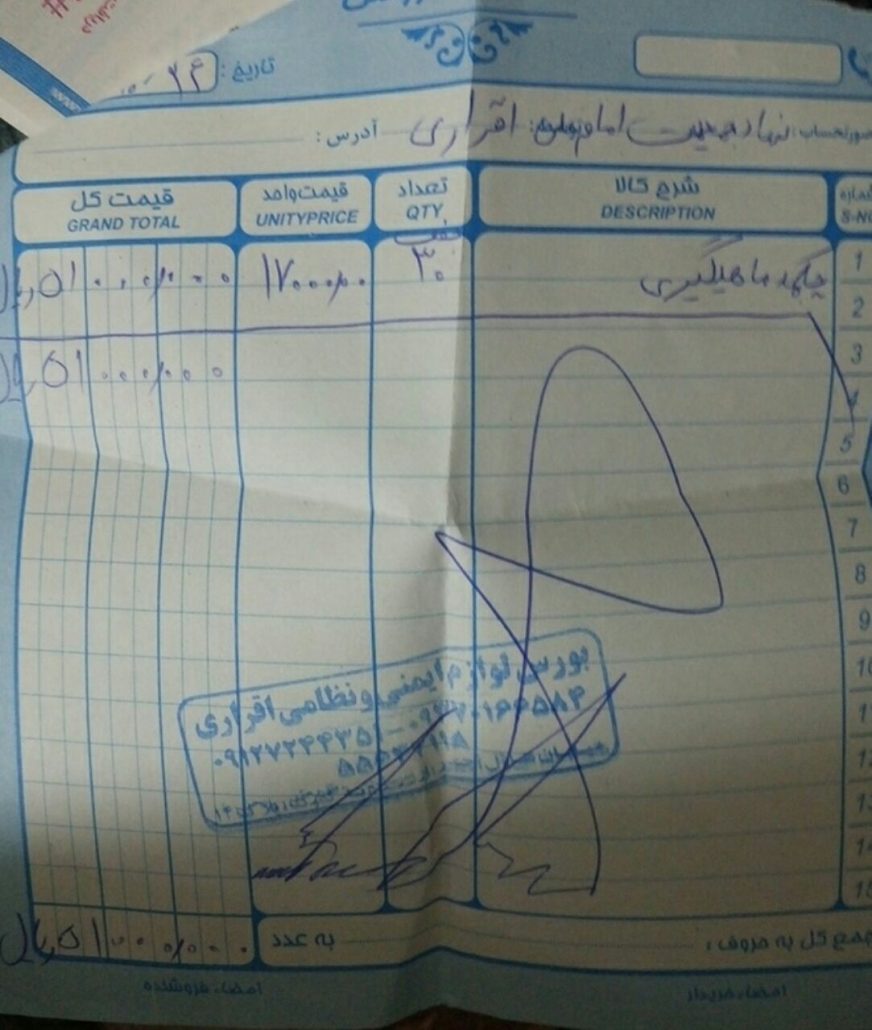 تاریخ: ۲۴
صورتحساب: امام اقراری آدرس:
شماره شرح کالا تعداد قیمت واحد قیمت کل
S-NO DESCRIPTION QTY. UNITYPRICE GRAND TOTAL
1 چکمه ماهیگیری ۳۰ ۱۷۰۰۰/۰۰ ۵۱۰۰۰/۰۰۰ ریال
2
3 ۵۱۰۰۰/۰۰۰ ریال
4
5
6
7
8
9
10
11
12
13
14
15
بورس لوازم ایمنی و نظامی اقراری
۰۹۱۲۷۲۴۴۳۵۱
جمع کل به حروف: به عدد ۵۱۰۰۰/۰۰۰ ریال
امضاء خریدار امضاء فروشنده